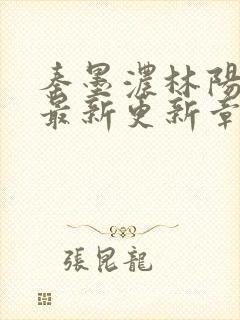 秦墨濃林陽
最新更新章
張昆龍